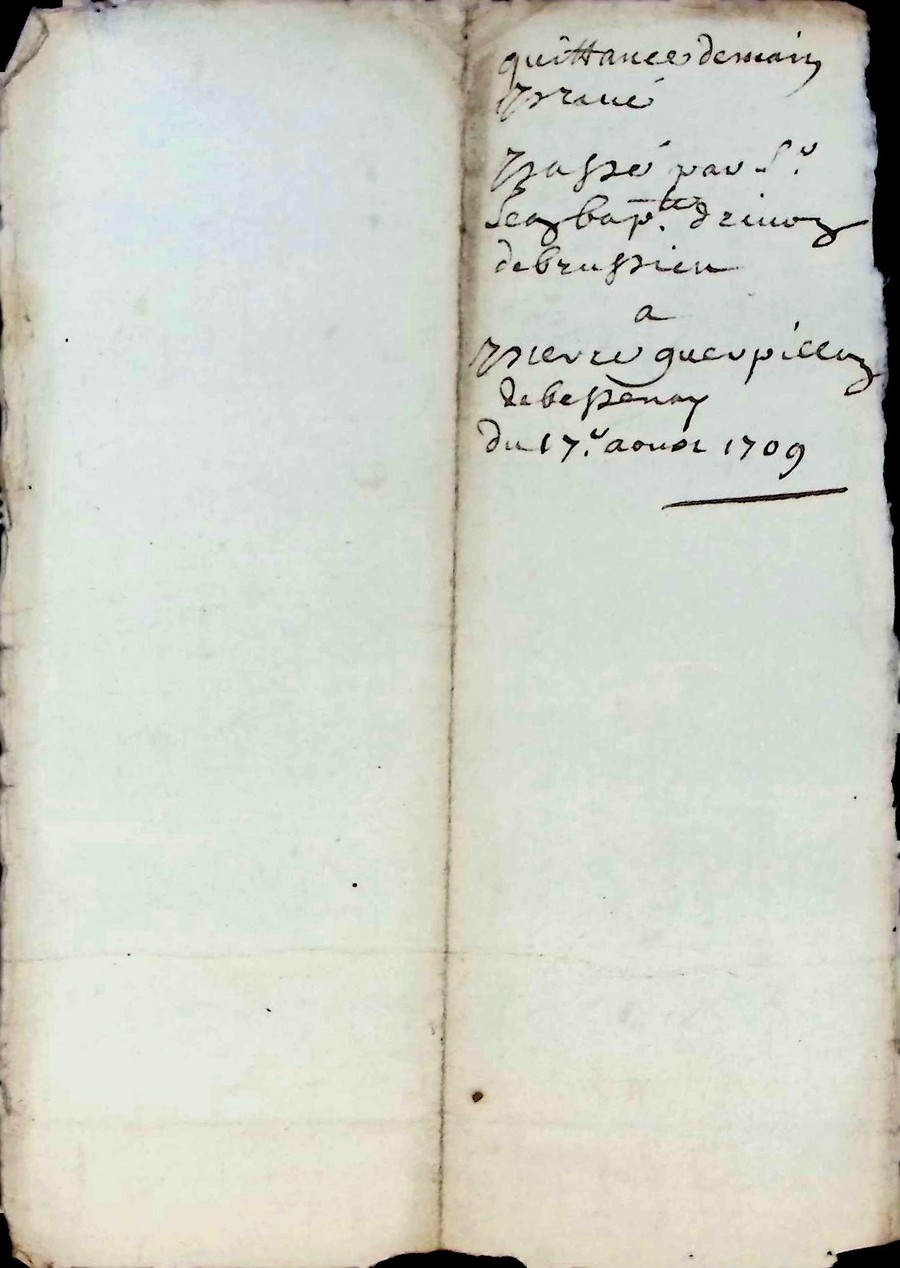 quittance de main
privé
passé par Sr.
Jean bapt.te drivon
de brussieu
a
pierre guerpillon
de bessenay
du 17.e aoust 1709